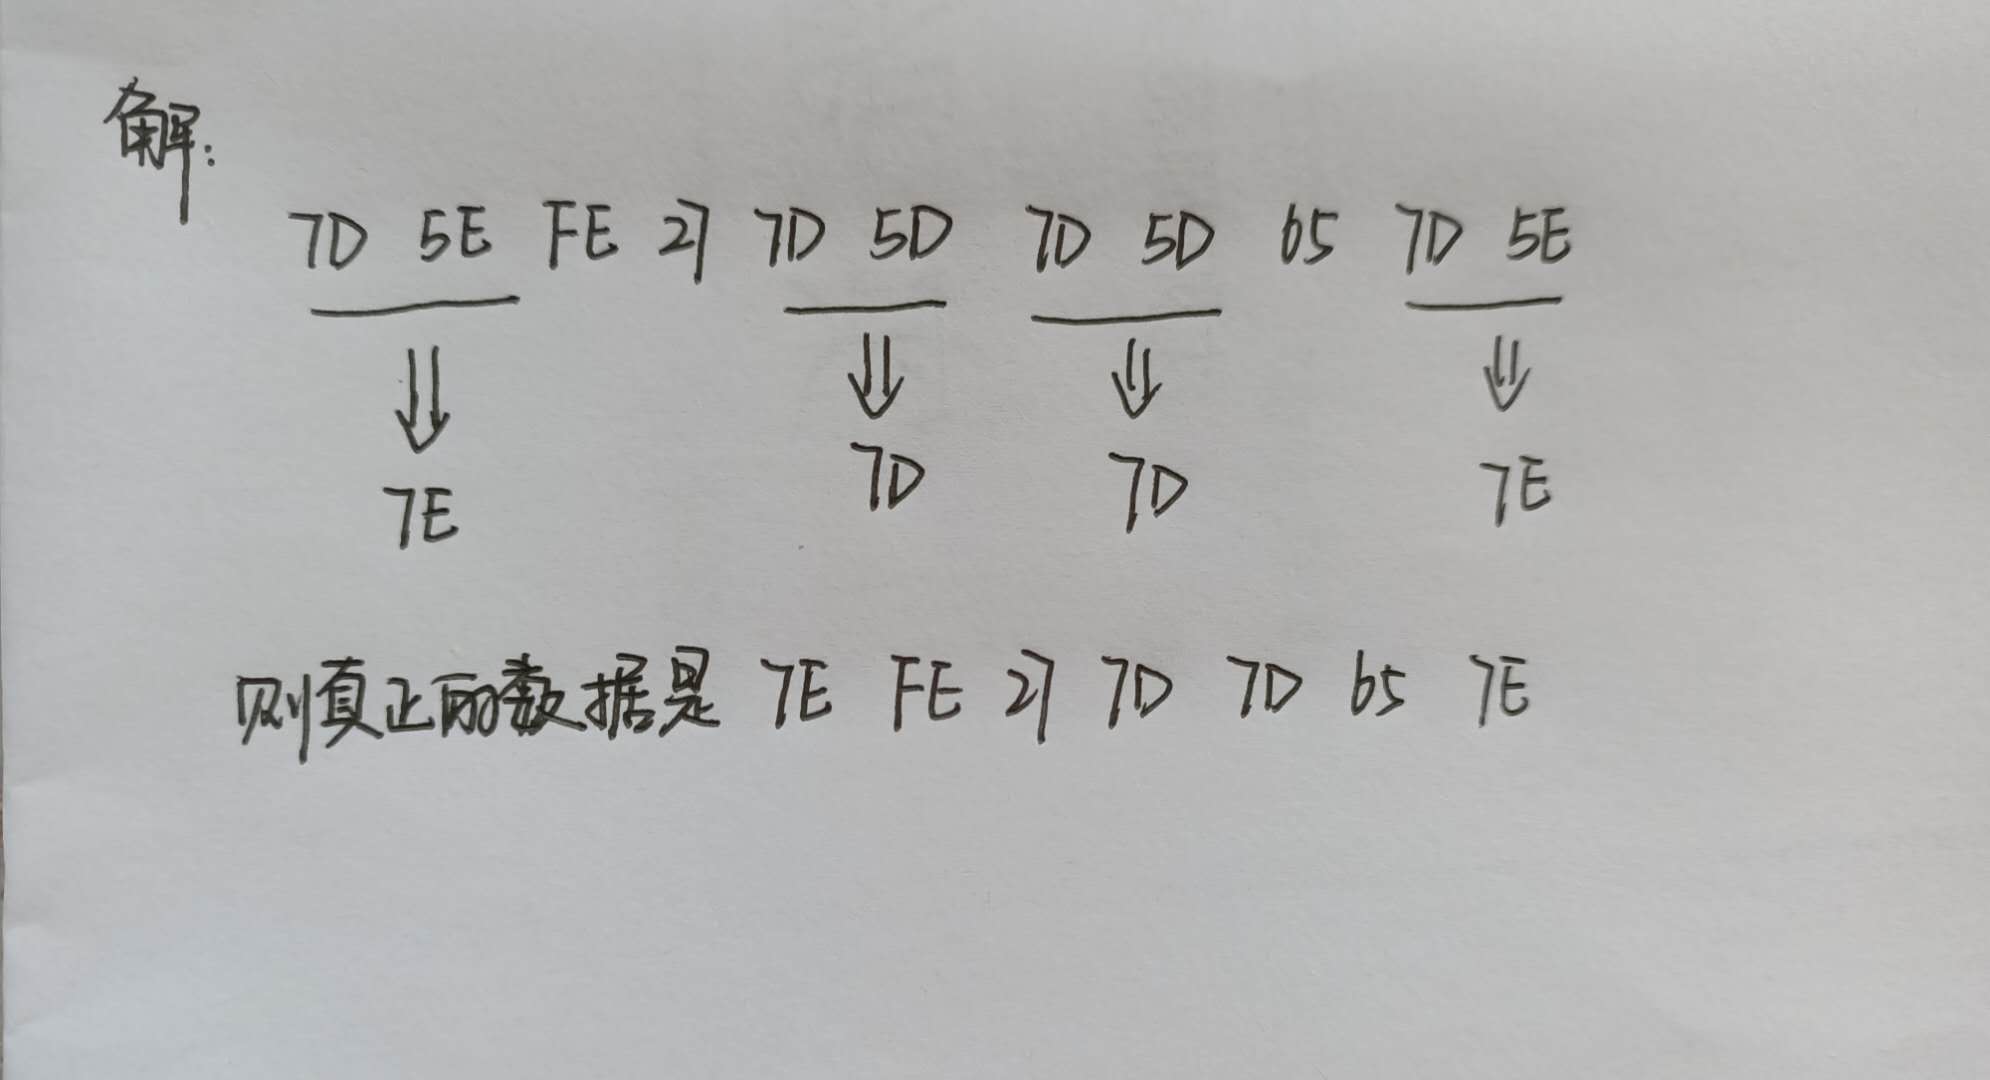 解:
7D 5E FE 27 7D 5D 7D 5D 65 7D 5E
7E 7D 7D 7E
则真正的数据是 7E FE 27 7D 7D 65 7E